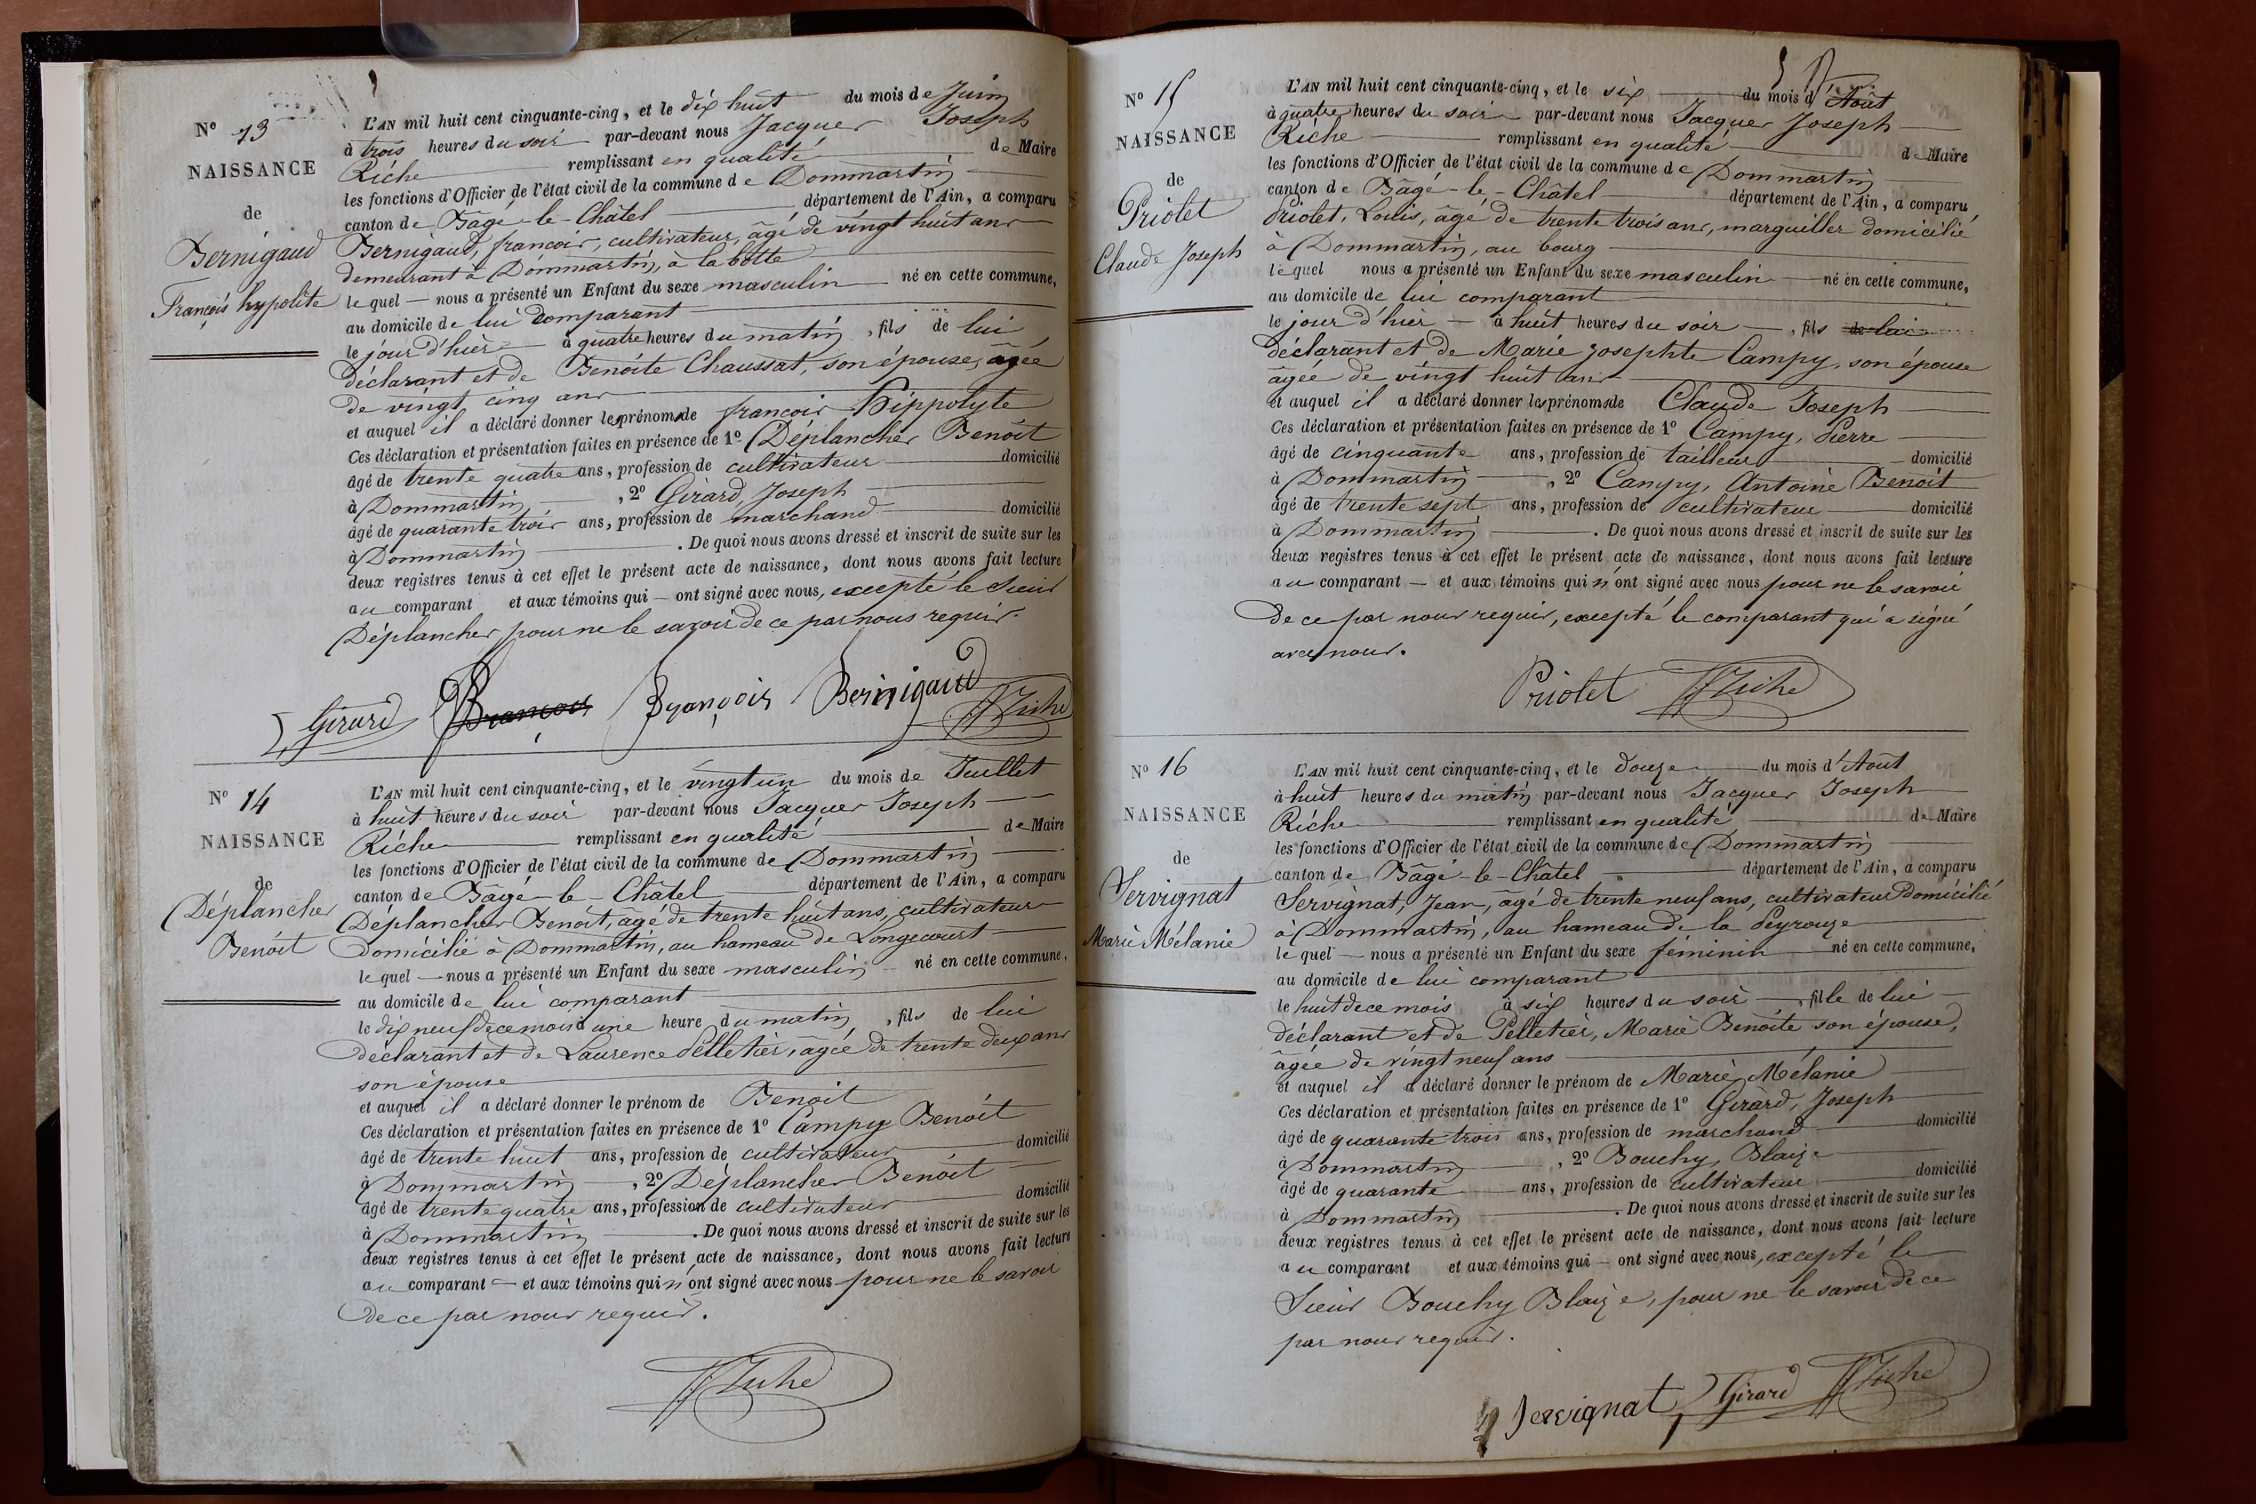 N° 13
NAISSANCE
de
Bernigaud
François hypolite
L'AN mil huit cent cinquante-cinq, et le dix huit du mois de Juin
à trois heures du soir par-devant nous Jacques Joseph
Riche remplissant en qualité de Maire
les fonctions d'Officier de l'état civil de la commune de Dommartin
canton de Bâgé-le-Châtel département de l'Ain, a comparu
Bernigaud, françois, cultivateur, âgé de vingt huit ans
demeurant à Dommartin, à la botte
lequel nous a présenté un Enfant du sexe masculin né en cette commune,
au domicile de lui comparant
le jour d'hier à quatre heures du matin, fils de lui
déclarant et de Benoite Chaussat, son épouse, âgée
de vingt cinq ans
et auquel il a déclaré donner les prénoms de françois Hippolyte
Ces déclaration et présentation faites en présence de 1° Déplanches Benoît
âgé de trente quatre ans, profession de cultivateur domicilié
à Dommartin, 2° Girard, Joseph
âgé de quarante trois ans, profession de marchand domicilié
à Dommartin. De quoi nous avons dressé et inscrit de suite sur les
deux registres tenus à cet effet le présent acte de naissance, dont nous avons fait lecture
au comparant et aux témoins qui ont signé avec nous, excepté le sieur
Déplanches pour ne le savoir de ce par nous requis.
Girard François François Bernigaud JJ Riche
N° 14
NAISSANCE
de
Déplanches
Benoît
L'AN mil huit cent cinquante-cinq, et le vingt un du mois de Juillet
à huit heures du soir par-devant nous Jacques Joseph
Riche remplissant en qualité de Maire
les fonctions d'Officier de l'état civil de la commune de Dommartin
canton de Bâgé-le-Châtel département de l'Ain, a comparu
Déplanches Benoît, âgé de trente huit ans, cultivateur
domicilié à Dommartin, au hameau de Longecourt
lequel nous a présenté un Enfant du sexe masculin né en cette commune,
au domicile de lui comparant
le dix neuf de ce mois à une heure du matin, fils de lui
déclarant et de Laurence Pelletier, âgée de trente deux ans
son épouse
et auquel il a déclaré donner le prénom de Benoit
Ces déclaration et présentation faites en présence de 1° Campy Benoît
âgé de trente huit ans, profession de cultivateur domicilié
à Dommartin, 2° Déplanches Benoît
âgé de trente quatre ans, profession de cultivateur domicilié
à Dommartin. De quoi nous avons dressé et inscrit de suite sur les
deux registres tenus à cet effet le présent acte de naissance, dont nous avons fait lecture
au comparant et aux témoins qui n'ont signé avec nous pour ne le savoir
de ce par nous requis.
JJ Riche
N° 15
NAISSANCE
de
Priolet
Claude Joseph
L'AN mil huit cent cinquante-cinq, et le six du mois d'Août
à quatre heures du soir par-devant nous Jacques Joseph
Riche remplissant en qualité de Maire
les fonctions d'Officier de l'état civil de la commune de Dommartin
canton de Bâgé-le-Châtel département de l'Ain, a comparu,
Priolet, Louis, âgé de trente trois ans, marguiller domicilié
à Dommartin, au bourg
lequel nous a présenté un Enfant du sexe masculin né en cette commune,
au domicile de lui comparant
le jour d'hier à huit heures du soir, fils de lui
déclarant et de Marie Josephte Campy, son épouse
âgée de vingt huit ans
et auquel il a déclaré donner les prénoms de Claude Joseph
Ces déclaration et présentation faites en présence de 1° Campy, Pierre
âgé de cinquante ans, profession de tailleur domicilié
à Dommartin, 2° Campy, Antoine Benoît
âgé de trente sept ans, profession de cultivateur domicilié
à Dommartin. De quoi nous avons dressé et inscrit de suite sur les
deux registres tenus à cet effet le présent acte de naissance, dont nous avons fait lecture
au comparant et aux témoins qui n'ont signé avec nous pour ne le savoir
de ce par nous requis, excepté le comparant qui a signé
avec nous.
Priolet JJ Riche
N° 16
NAISSANCE
de
Servignat
Marie Mélanie
L'AN mil huit cent cinquante-cinq, et le douze du mois d'Août
à huit heures du matin par-devant nous Jacques Joseph
Riche remplissant en qualité de Maire
les fonctions d'Officier de l'état civil de la commune de Dommartin
canton de Bâgé-le-Châtel département de l'Ain, a comparu
Servignat, Jean, âgé de trente neuf ans, cultivateur domicilié
à Dommartin, au hameau de la Peyrouze
lequel nous a présenté un Enfant du sexe féminin né en cette commune,
au domicile de lui comparant
le huit de ce mois à six heures du soir, fille de lui
déclarant et de Pelletier, Marie Benoite son épouse,
âgée de vingt neuf ans
et auquel il a déclaré donner le prénom de Marie Mélanie
Ces déclaration et présentation faites en présence de 1° Girard, Joseph
âgé de quarante trois ans, profession de marchand domicilié
à Dommartin, 2° Bouchy, Blaize
âgé de quarante ans, profession de cultivateur domicilié
à Dommartin. De quoi nous avons dressé et inscrit de suite sur les
deux registres tenus à cet effet le présent acte de naissance, dont nous avons fait lecture
au comparant et aux témoins qui ont signé avec nous, excepté le
Sieur Bouchy Blaize, pour ne le savoir de ce
par nous requis.
Servignat Girard JJ Riche